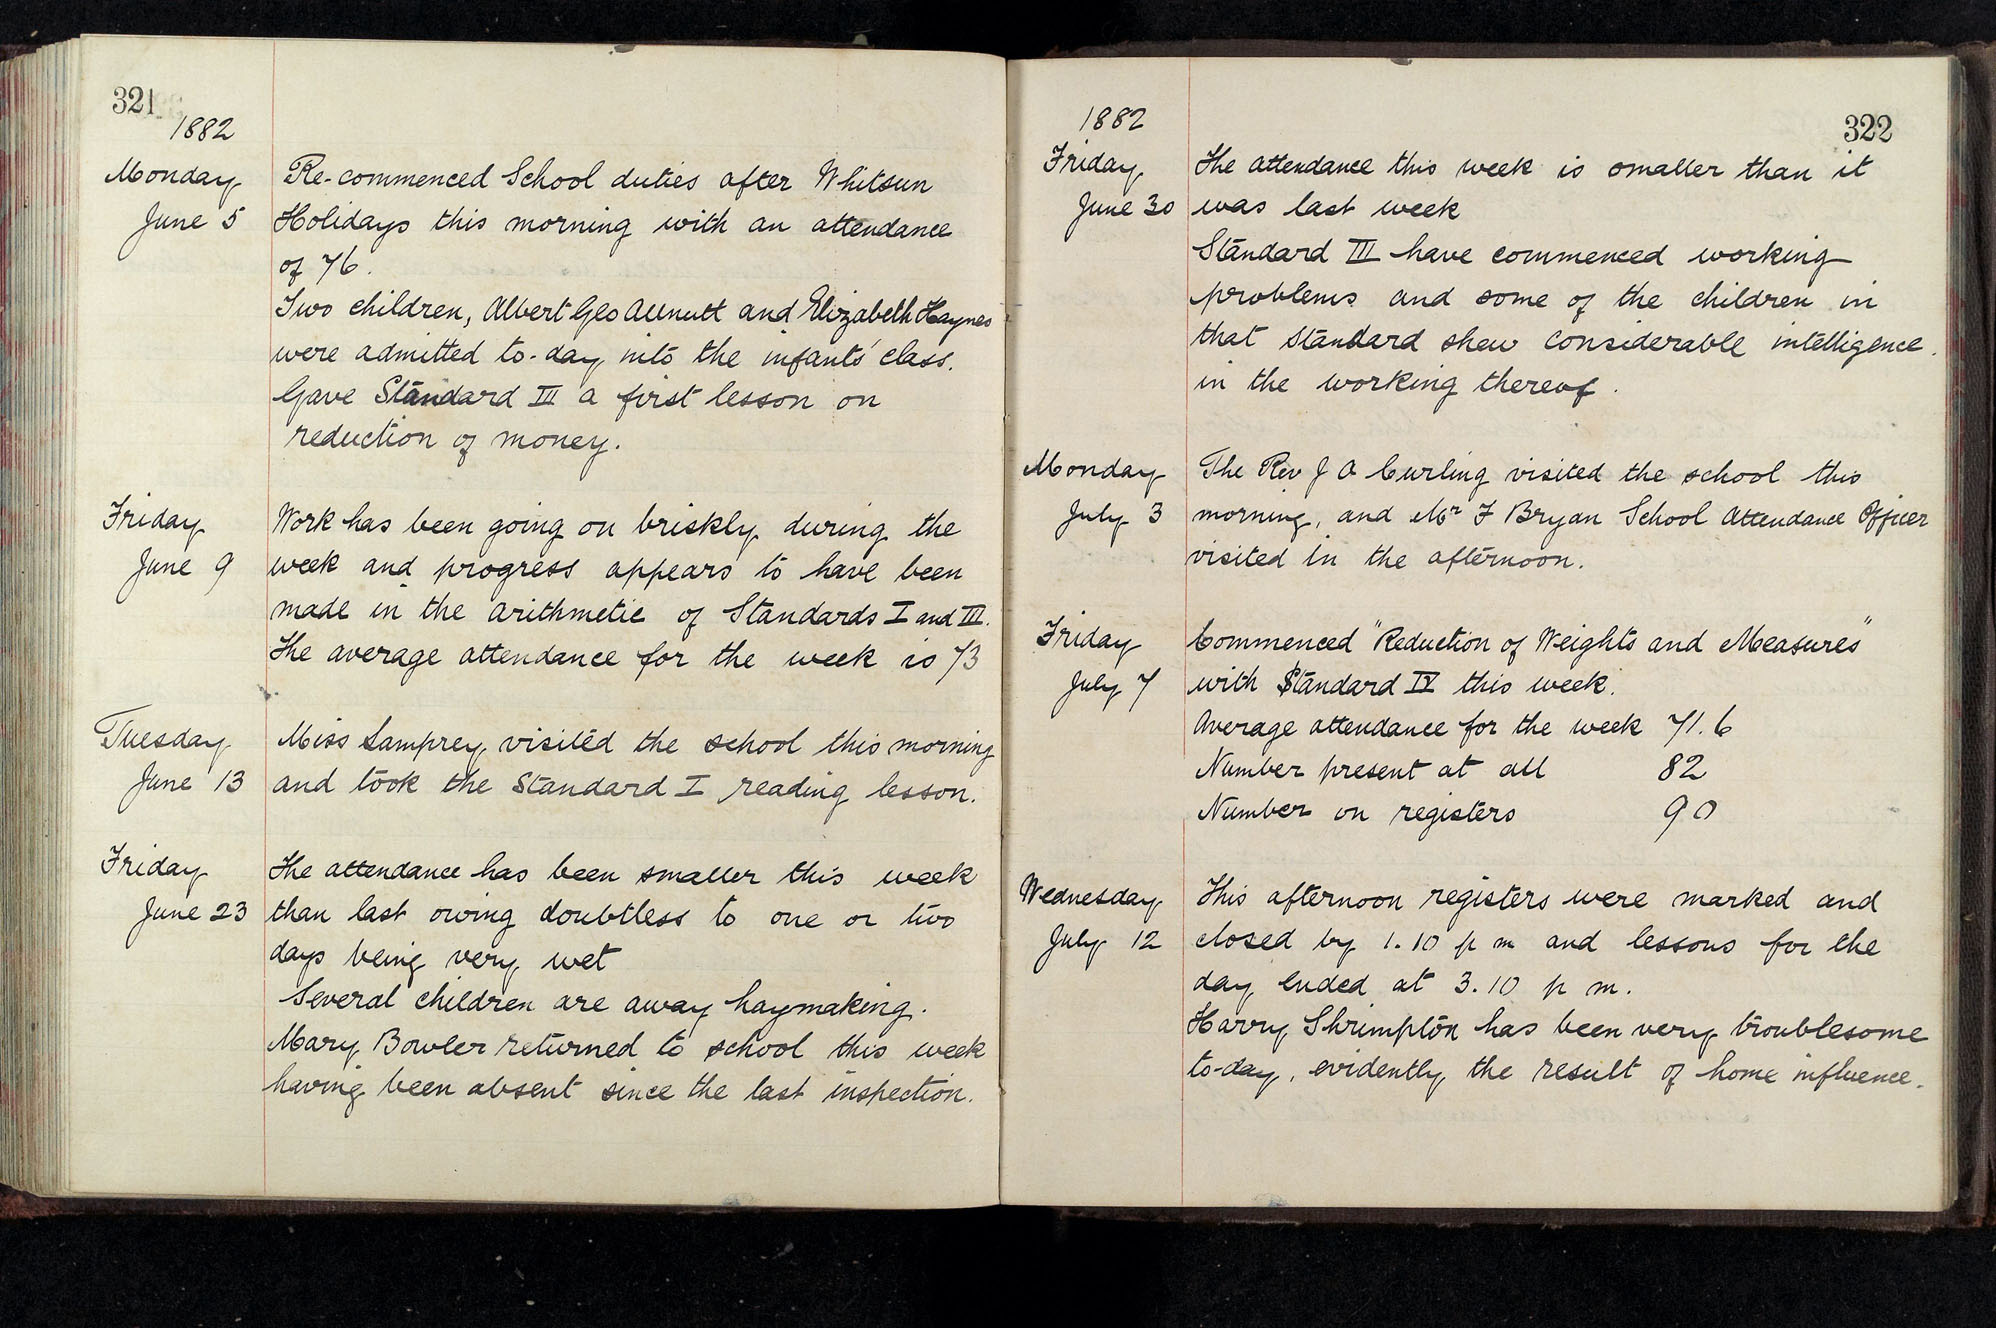 321
1882
Monday Re-commenced School duties after Whitsun
June 5 Holidays this morning with an attendance
of 76.
Two children, Albert Geo Allnutt and Elizabeth Haynes
were admitted to-day into the infants' class.
Gave Standard III a first lesson on
reduction of money.
Friday Work has been going on briskly during the
June 9 week and progress appears to have been
made in the arithmetic of Standards I and III.
The average attendance for the week is 73
Tuesday Miss Lamprey visited the school this morning
June 13 and took the Standard I reading lesson.
Friday The attendance has been smaller this week
June 23 than last owing doubtless to one or two
days being very wet
Several children are away haymaking.
Mary Bowler returned to school this week
having been absent since the last inspection.
322
1882
Friday The attendance this week is smaller than it
June 30 was last week
Standard III have commenced working
problems and some of the children in
that standard shew considerable intelligence
in the working thereof.
Monday The Rev J A Curling visited the school this
July 3 morning, and Mr F Bryan School Attendance Officer
visited in the afternoon.
Friday Commenced "Reduction of Weights and Measures"
July 7 with Standard IV this week.
Average attendance for the week 71.6
Number present at all 82
Number on registers 90
Wednesday This afternoon registers were marked and
July 12 closed by 1.10 p m and lessons for the
day ended at 3.10 p m.
Harry Shrimpton has been very troublesome
to-day, evidently the result of home influence.